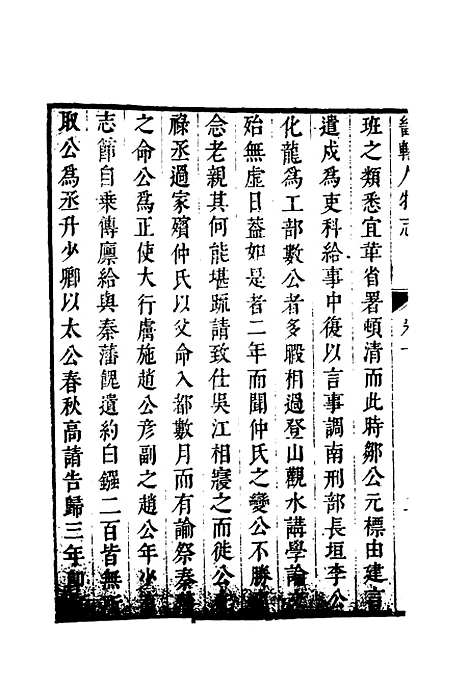 人物志
班之類悉宜革省署頓清而此時鄒公元標由建言
遣戍為吏科給事中復以言事調南刑部長垣李公
化龍為工部數公者多暇相過登山觀水講學論
始無虛日蓋如是者二年而聞仲氏之變公不勝
念老親其何能堪疏請致仕吳江相寢之而徙公
祿丞過家殯仲氏以父命入都數月而有諭祭秦
之命公為正使大行膚施趙公彥副之趙公年少
志節自乘傳廪給與秦藩餽遺約白鏹二百皆無
取公為丞升少卿以太公春秋高請告歸三年即